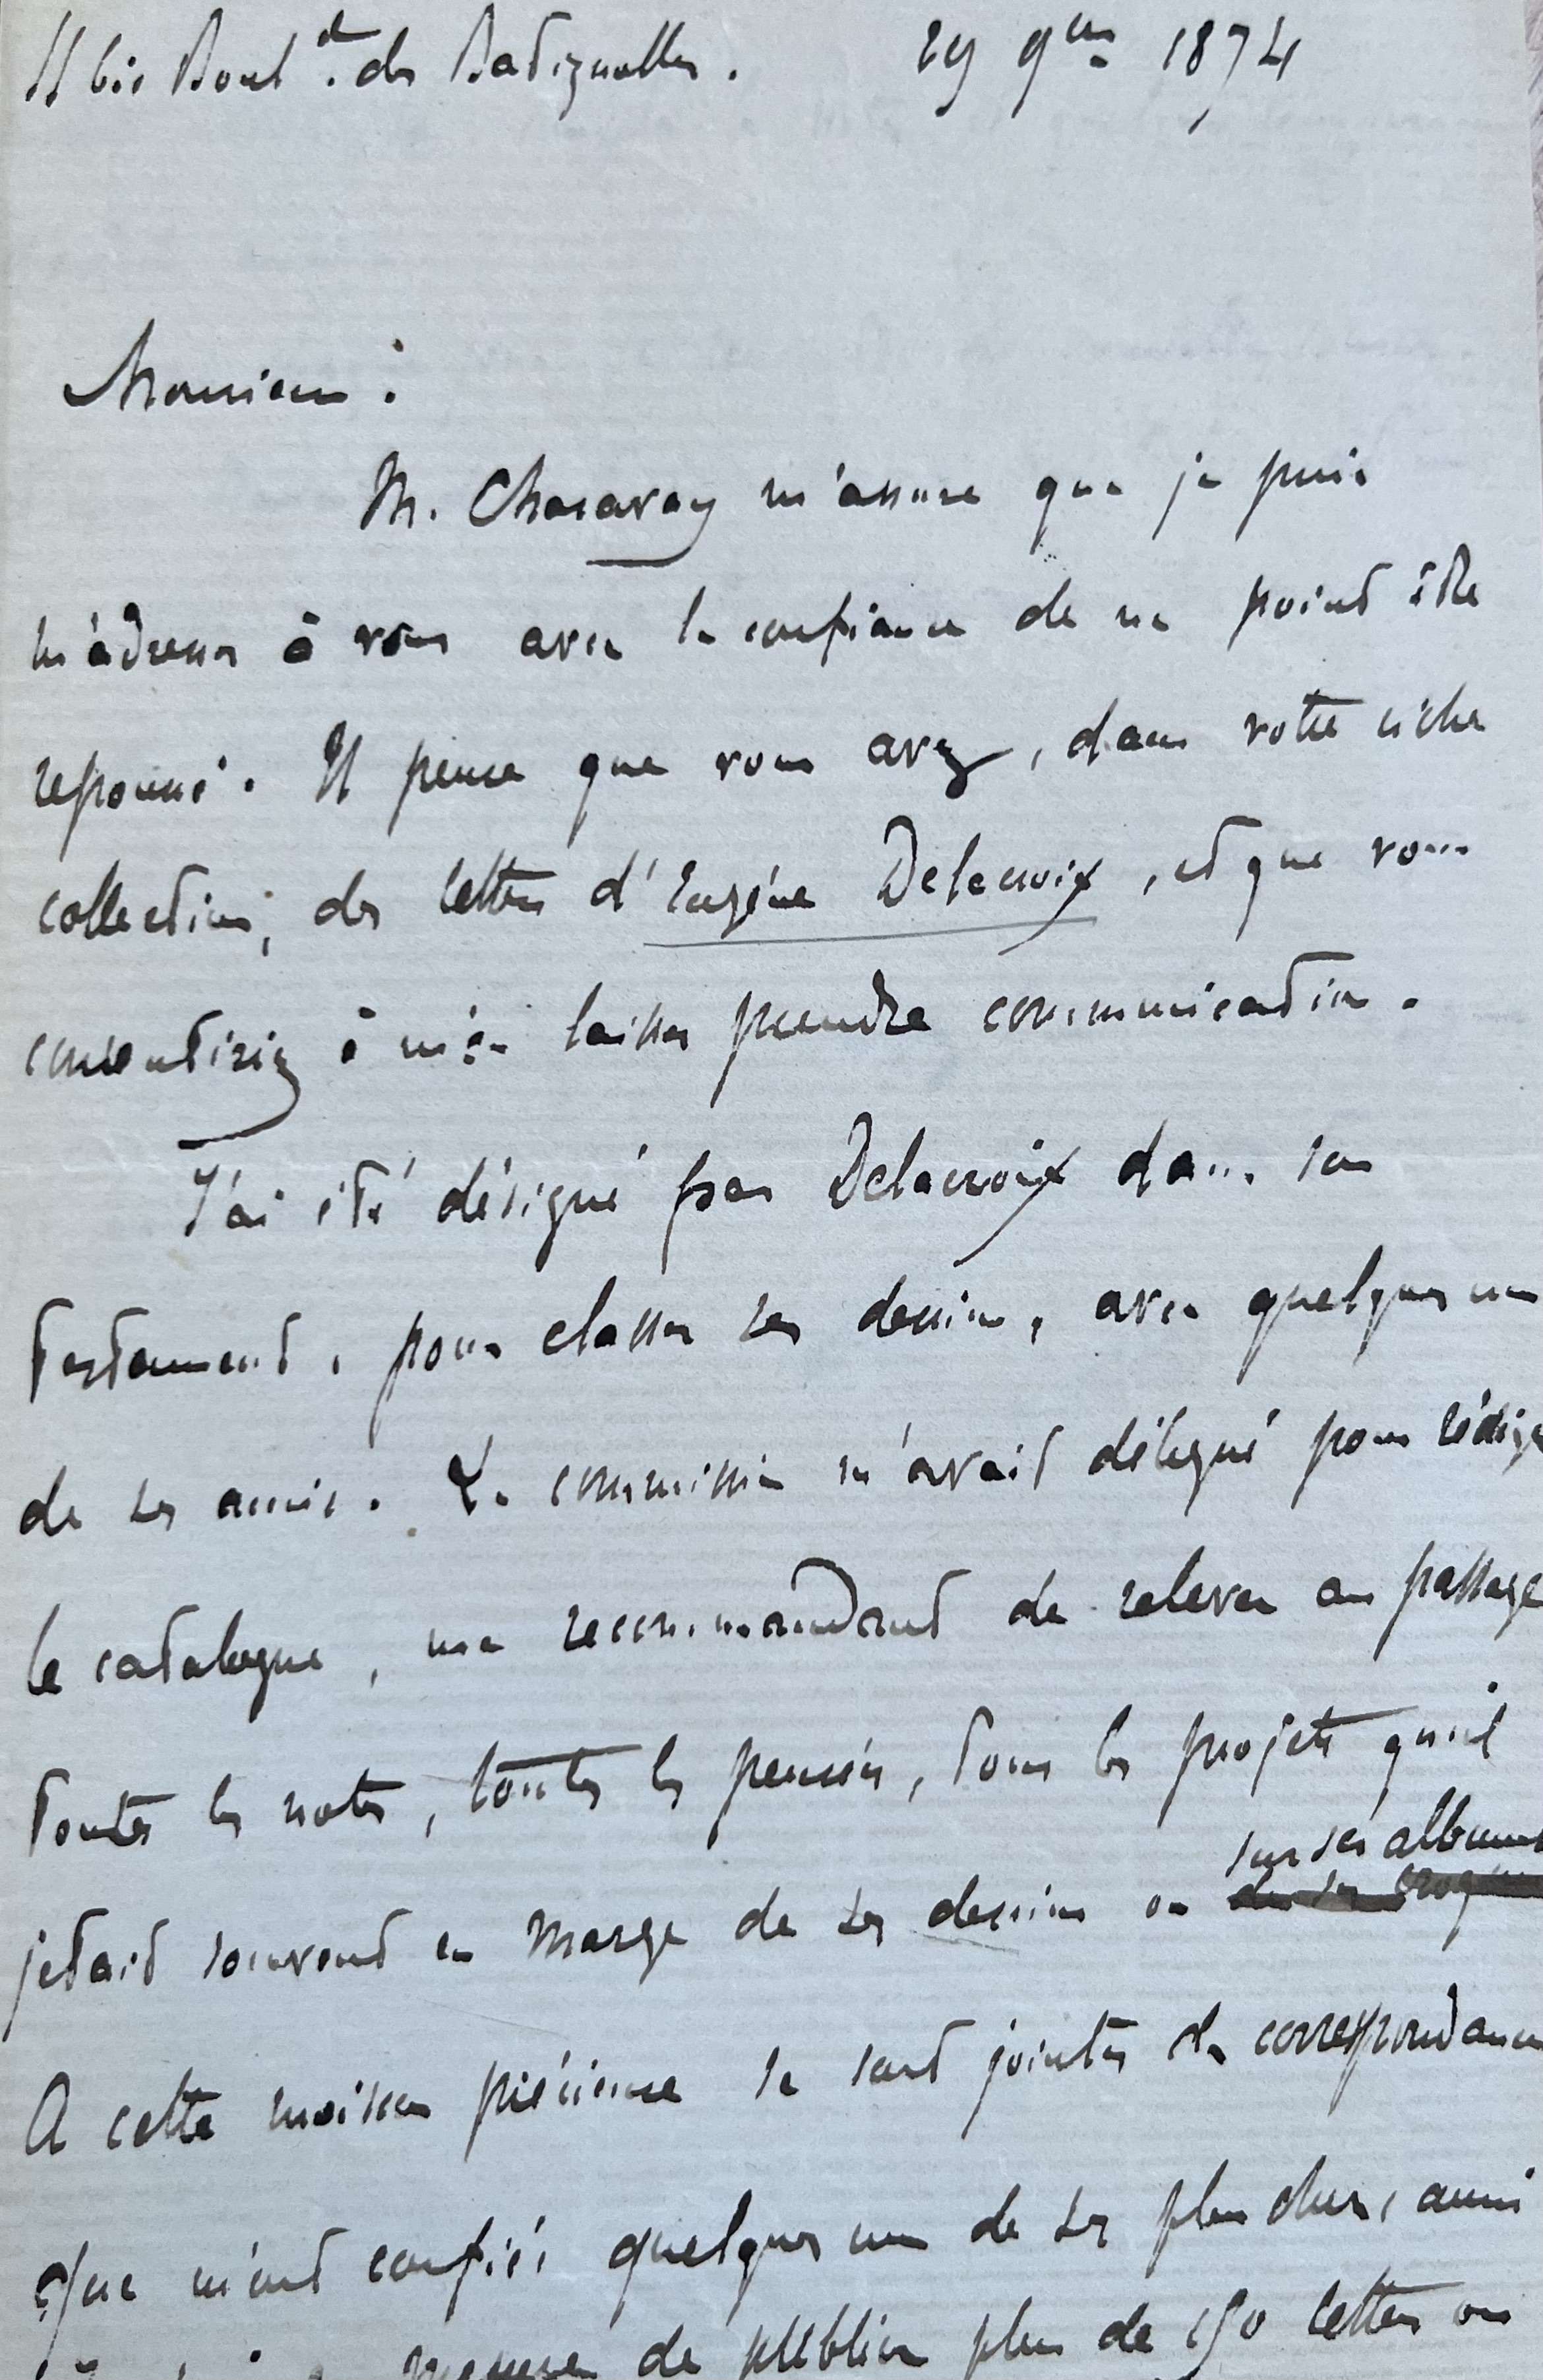 11 bis Boul.d des Batignolles. 29 9bre 1874
Monsieur :
M. Charavay m'assure que je puis
m'adresser à vous avec la confiance de ne point être
repoussé. Il pense que vous avez, dans votre riche
collection, des lettres d'Eugène Delacroix, et que vous
consentiriez à m'en laisser prendre communication.
J'ai été désigné par Delacroix dans son
testament, pour classer ses dessins, avec quelques uns
de ses amis. La commission m'avait délégué pour rédiger
le catalogue, me recommandant de relever au passage
toutes les notes, toutes les pensées, tous les projets qu'il
sur ses albums
jetait souvent en marge de ses dessins ou
A cette moisson précieuse se sont jointes des correspondances
que m'ont confiées quelques uns de ses plus chers amis
mesure de publier plus de 150 lettres ou